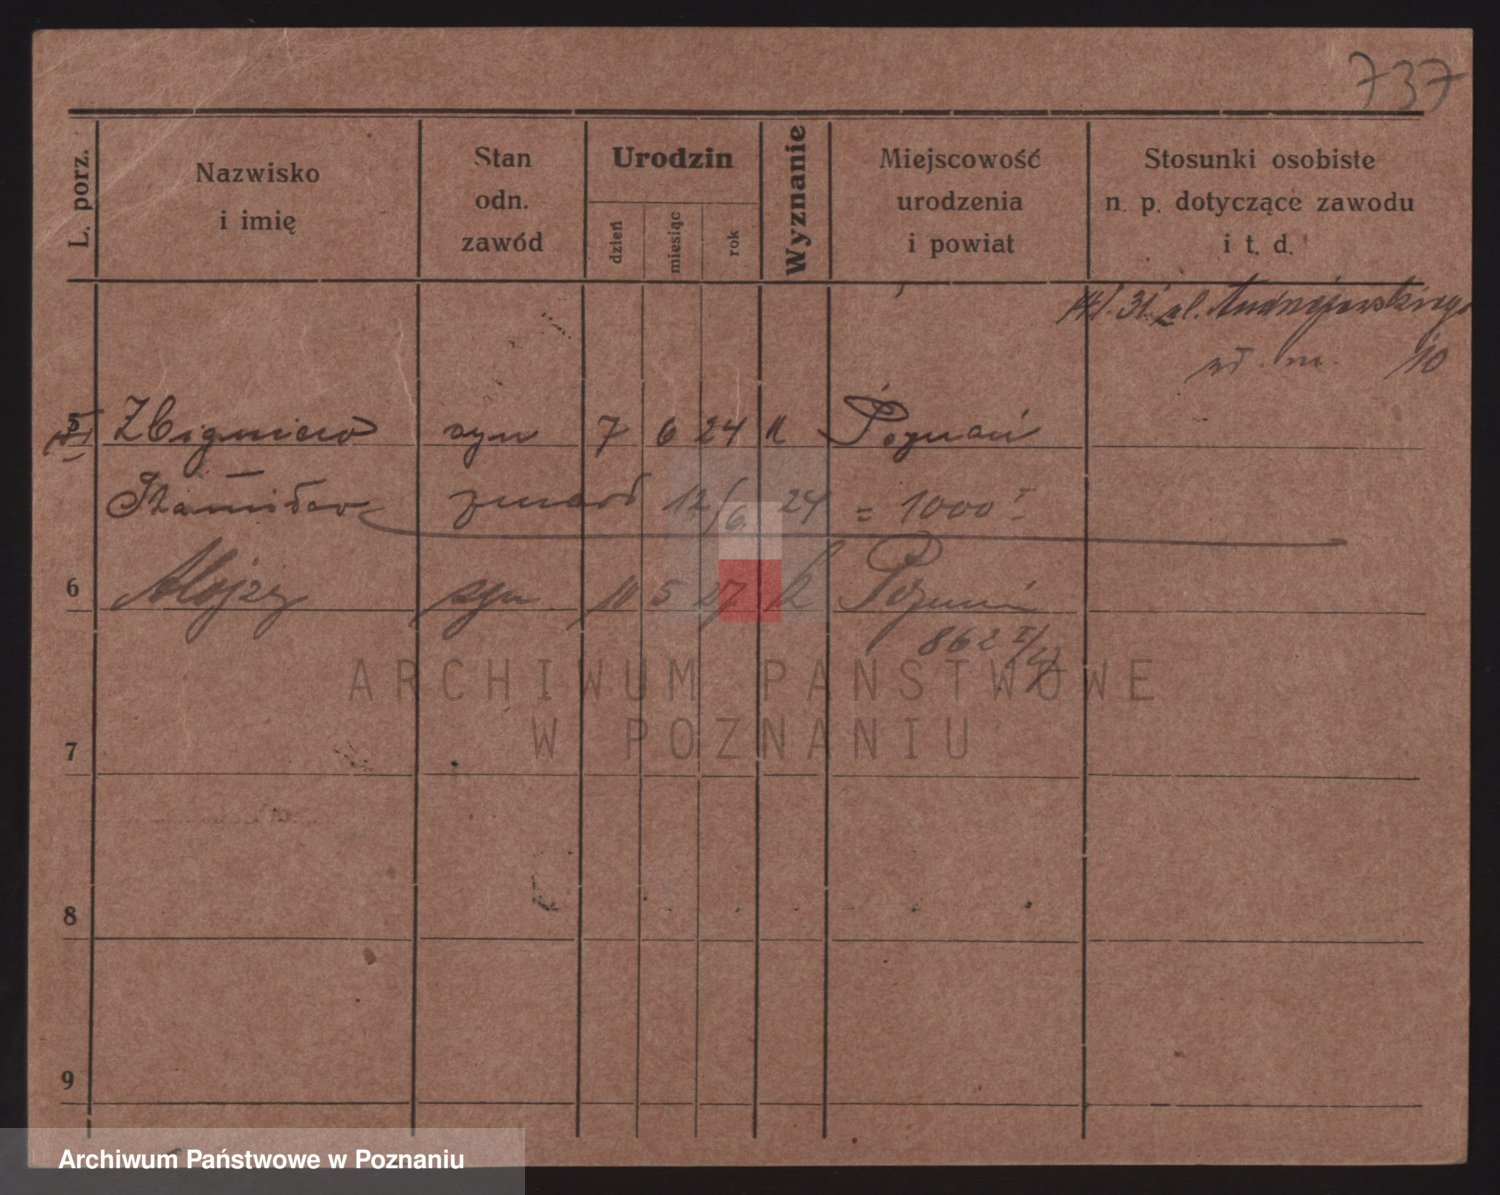 737
L. porz.
Nazwisko
i imię
Stan
odn.
zawód
Urodzin
dzień
miesiąc
rok
Wyznanie
Miejscowość
urodzenia
i powiat
Stosunki osobiste
n. p. dotyczące zawodu
i t. d.
31 ul. Andrzejewskiego
10
5 Zbigniew syn 7 6 24 k Poznań
Stanisław zmarł 12/6 24 = 1000 I
6 Alojzy syn 10 5 27 k Poznań
862 II/
7
ARCHIWUM PAŃSTWOWE
W POZNANIU
8
9
Archiwum Państwowe w Poznaniu